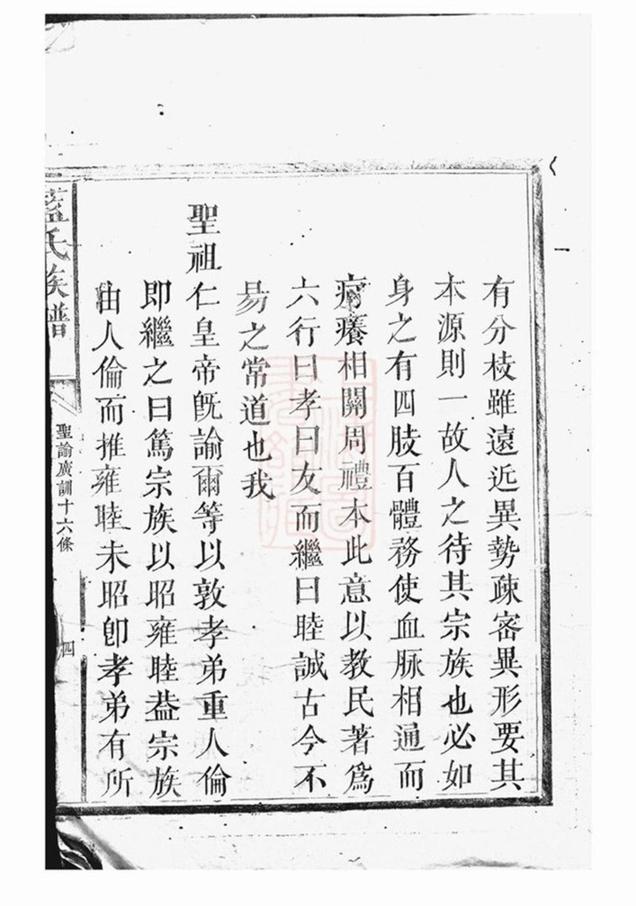 有分枝雖遠近異勢疎密異形要其
本源則一故人之待其宗族也必如
身之有四肢百體務使血脉相通而
疴癢相關周禮本此意以教民著為
六行曰孝曰友而繼曰睦誠古今不
昜之常道也我
聖祖仁皇帝旣諭爾等以敦孝弟重人倫
即繼之曰篤宗族以昭雍睦葢宗族
由人倫而推雍睦未昭卽孝弟有所
藍氏族譜
聖諭廣訓十六條
四